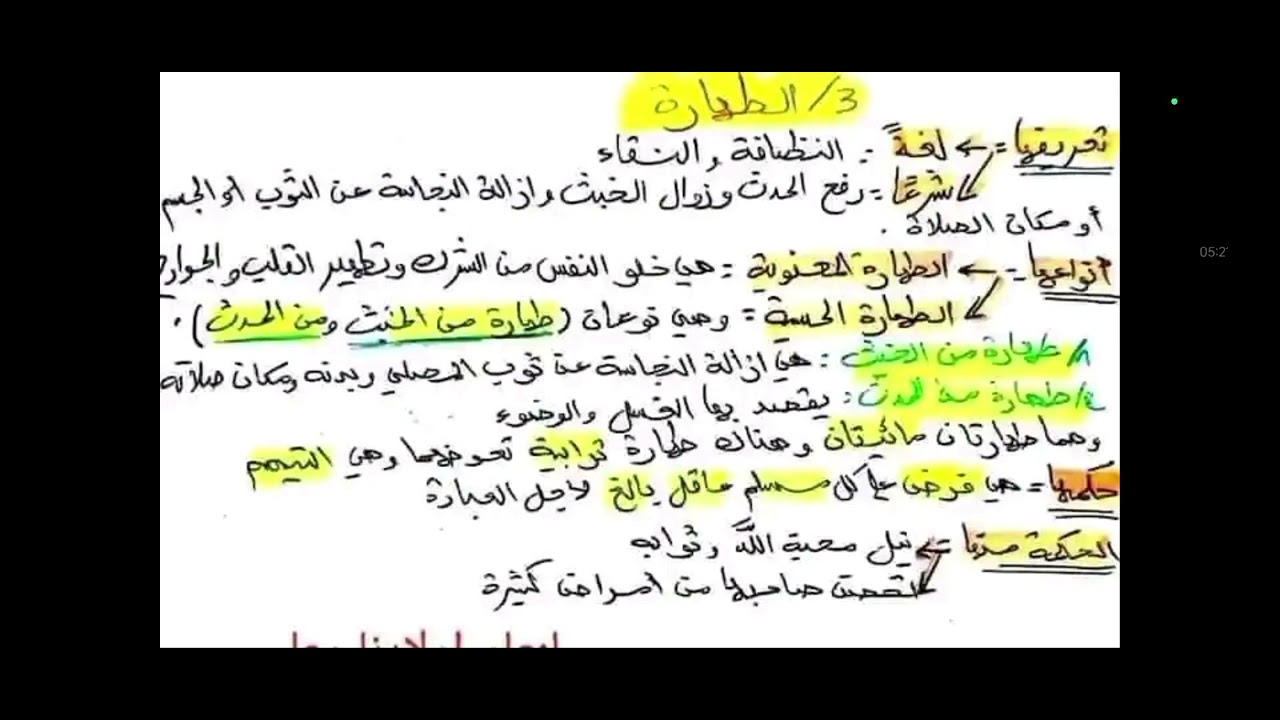 3/ الطهارة
تعريفها = ← لغةً : النظافة والنقاء
شرعًا = رفع الحدث وزوال الخبث وازالة النجاسة عن الثوب او الجسم
أو مكان الصلاة .
أنواعها = ← الطهارة المعنوية = هي خلو النفس من الشرك وتطهير القلب والجوارح
الطهارة الحسية = وهي نوعان (طهارة من الخبث ومن الحدث) .
1/ طهارة من الخبث : هي ازالة النجاسة عن ثوب المصلي وبدنه ومكان صلاته
2/ طهارة من الحدث : يقصد بها الغسل والوضوء
وهما طهارتان مائيتان وهناك طهارة ترابية تعوضهما وهي التيمم
حكمها = هي فرض على كل مسلم عاقل بالغ لأجل العبادة
الحكمة منها = نيل محبة الله وثوابه
تحصن صاحبها من أمراض كثيرة
05:2